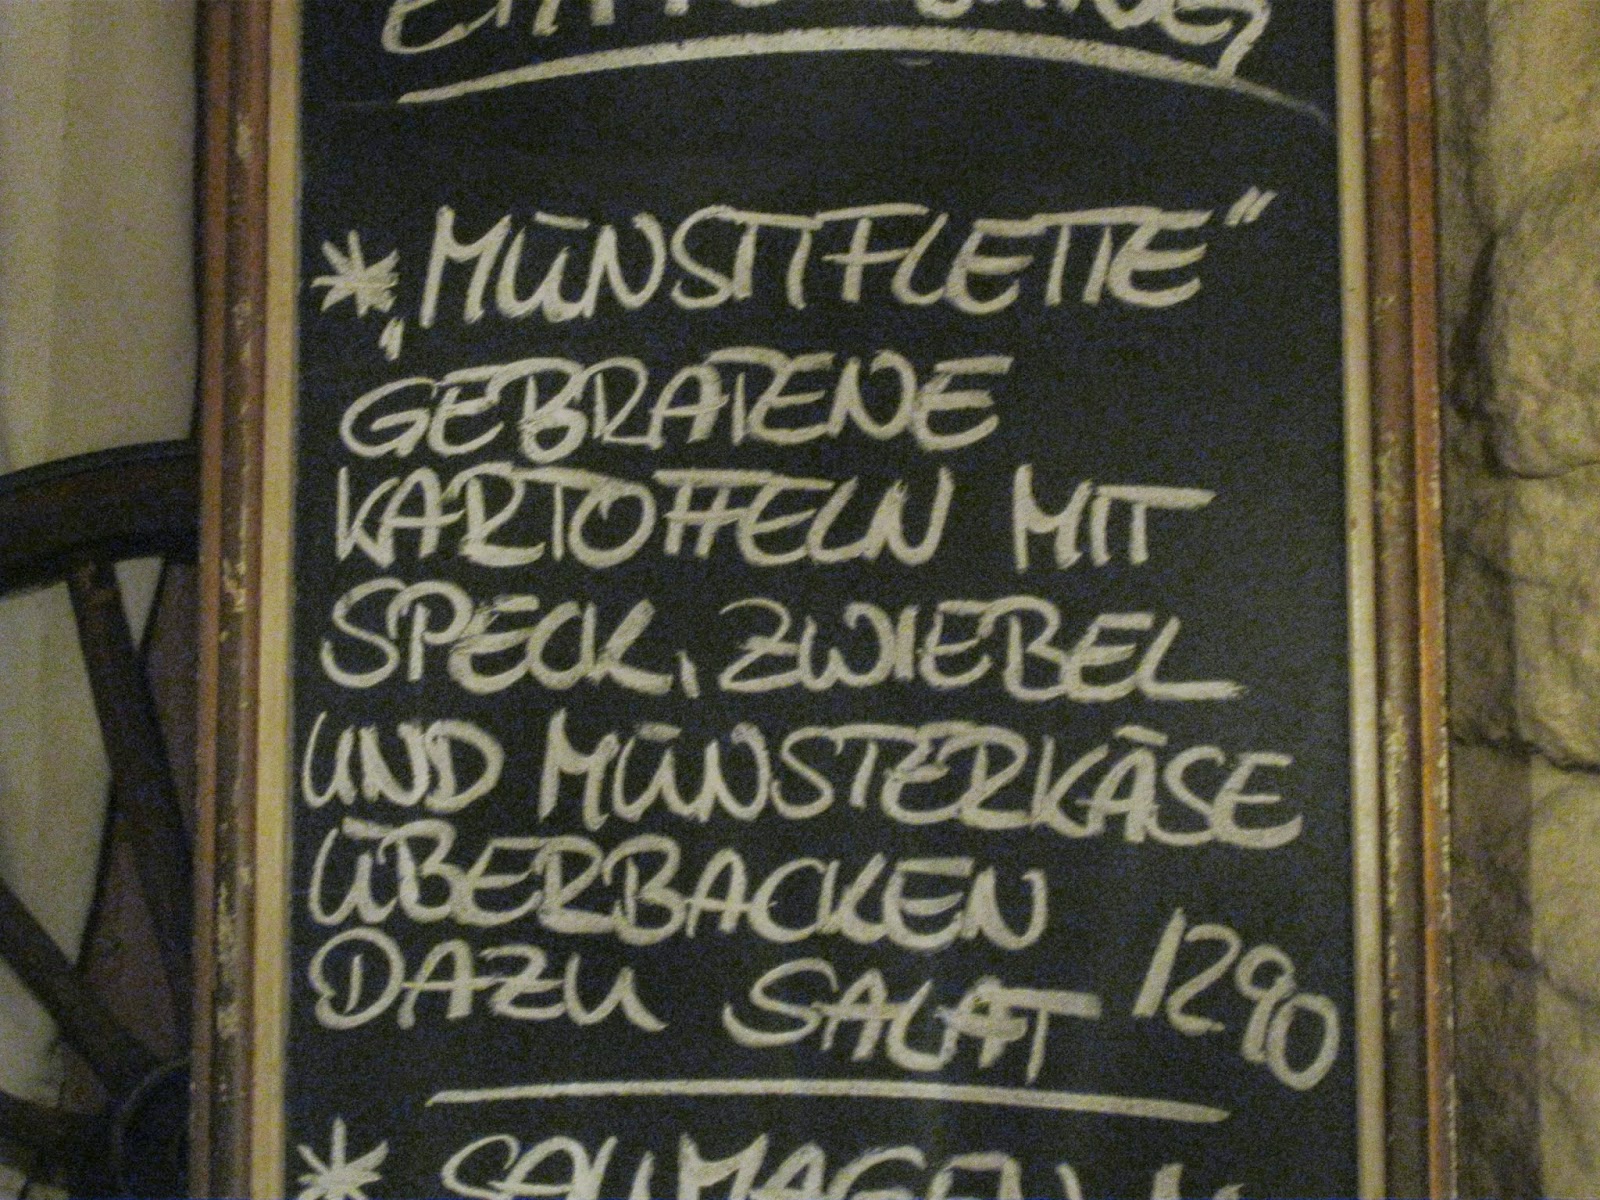 * „MÜNSTTFLETTE“
GEBRATENE
KARTOFFELN MIT
SPECK, ZWIEBEL
UND MÜNSTERKÄSE
ÜBERBACKEN
DAZU SALAT 1290
* SAUMAGEN